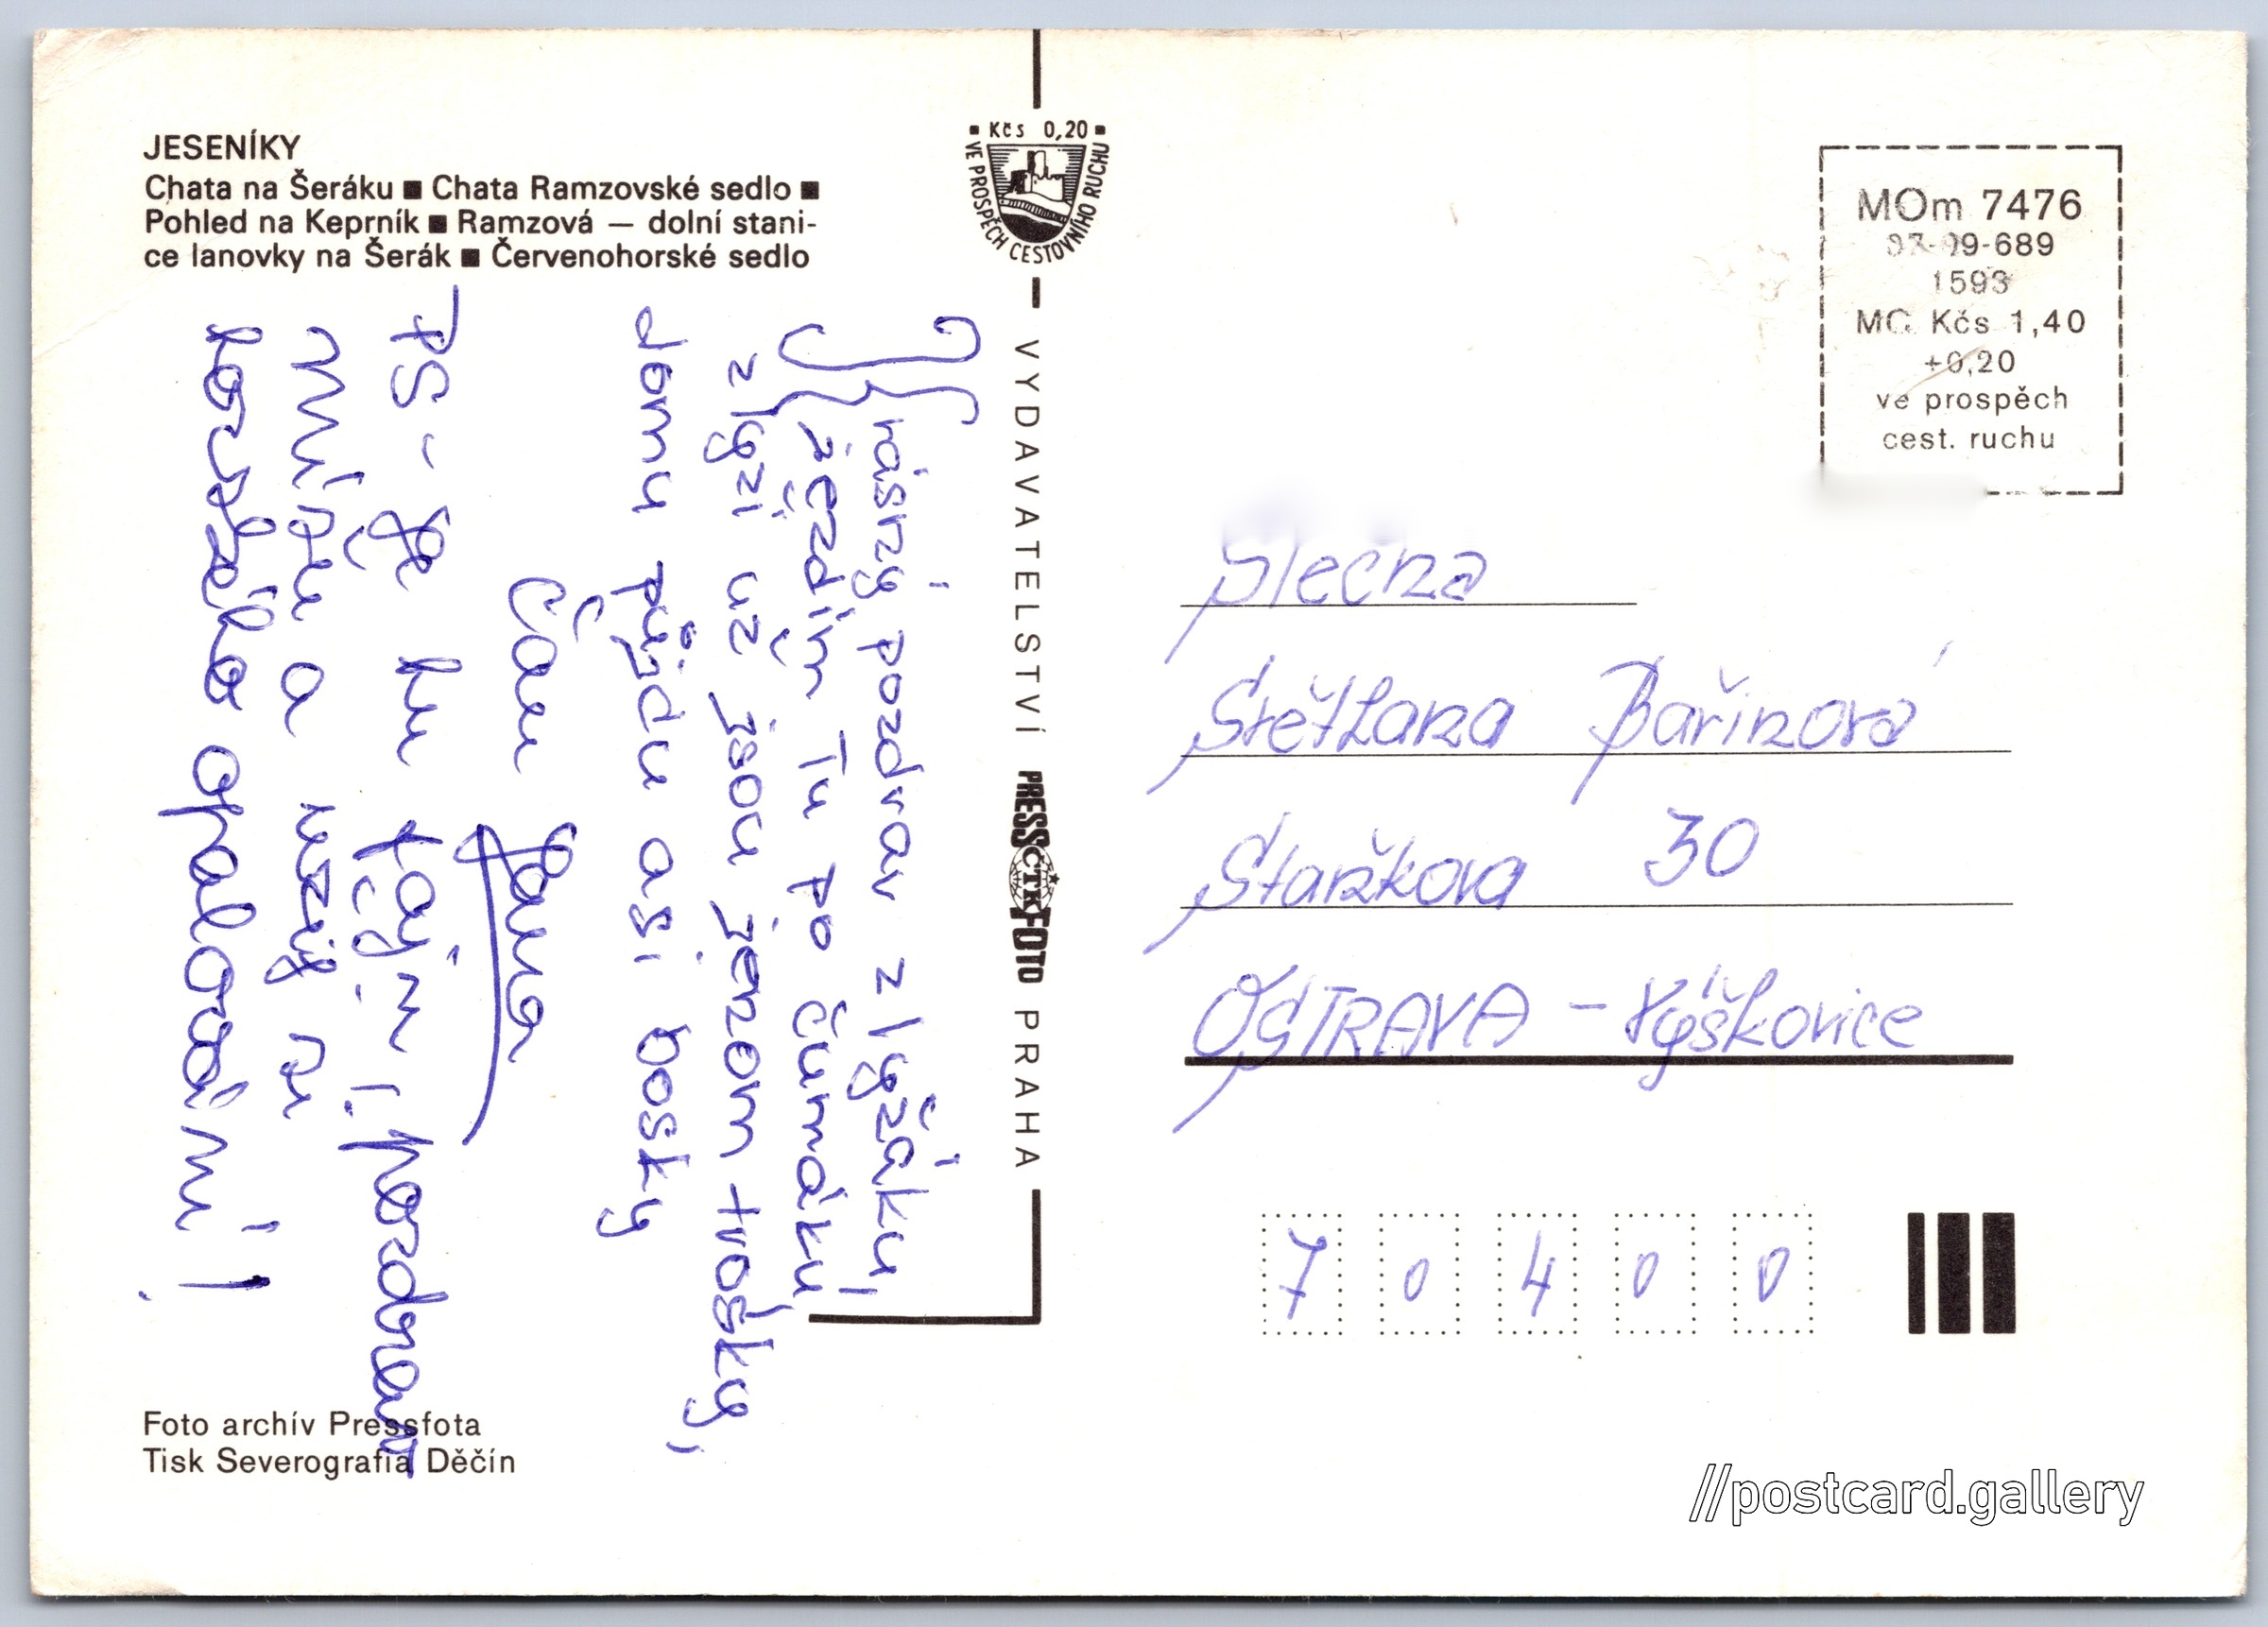 JESENÍKY
Chata na Šeráku ■ Chata Ramzovské sedlo ■
Pohled na Keprník ■ Ramzová — dolní stani-
ce lanovky na Šerák ■ Červenohorské sedlo
Kčs 0,20
VE PROSPĚCH CESTOVNÍHO RUCHU
VYDAVATELSTVÍ PRESSFOTO PRAHA
ČTK
Krásný pozdrav z lyžáku,
Ježdím Tu po čumáku,
z lyží už jsou jenom trosky,
domu půjdu asi bosky
Čau Jana
PS - Je ku tajn i. pozdravu
a užij
opalování!
Foto archív Pressfota
Tisk Severografia Děčín
MOm 7476
07-09-689
1593
MC Kčs 1,40
+0,20
ve prospěch
cest. ruchu
Slečna
Světlana Bařinová
Staňkova 30
OSTRAVA - Výškovice
7 0 4 0 0
//postcard.gallery